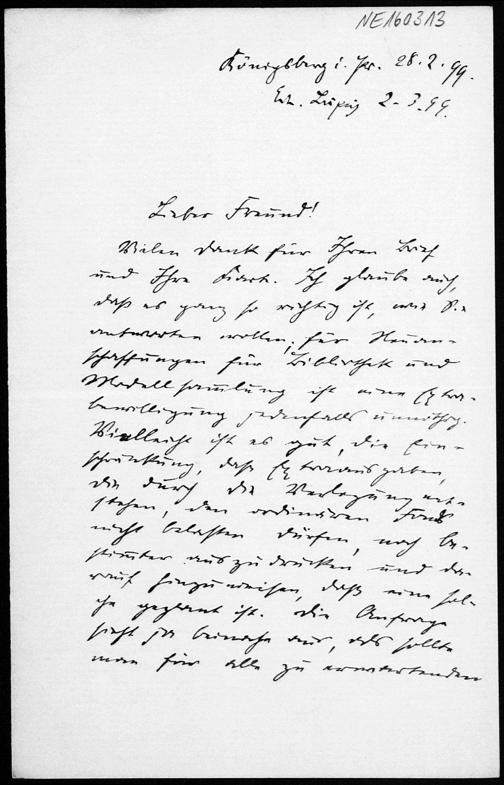 NE160313
Königsberg i. Pr. 28.2.99.
Leipzig 2-3.99.
Lieber Freund!
Vielen Dank für Ihren Brief
und Ihre Karte. Ich glaube auch,
daß es ganz so richtig ist, wie Sie
antworten wollen; für Neuan-
schaffungen für Bibliothek und
Modellsammlung ist eine Extra-
bewilligung jedenfalls unnöthig.
Vielleicht ist es gut, die Ein-
schränkung, daß Extraausgaben,
die durch die Verlegung ent-
stehen, den ordinären Fond
nicht belasten dürfen, noch be-
stimmter auszudrücken und da-
rauf hinzuweisen, daß eine sol-
che geplant ist. Die Anfrage
sieht ja beinahe aus, als sollte
man für alle zu erwartenden